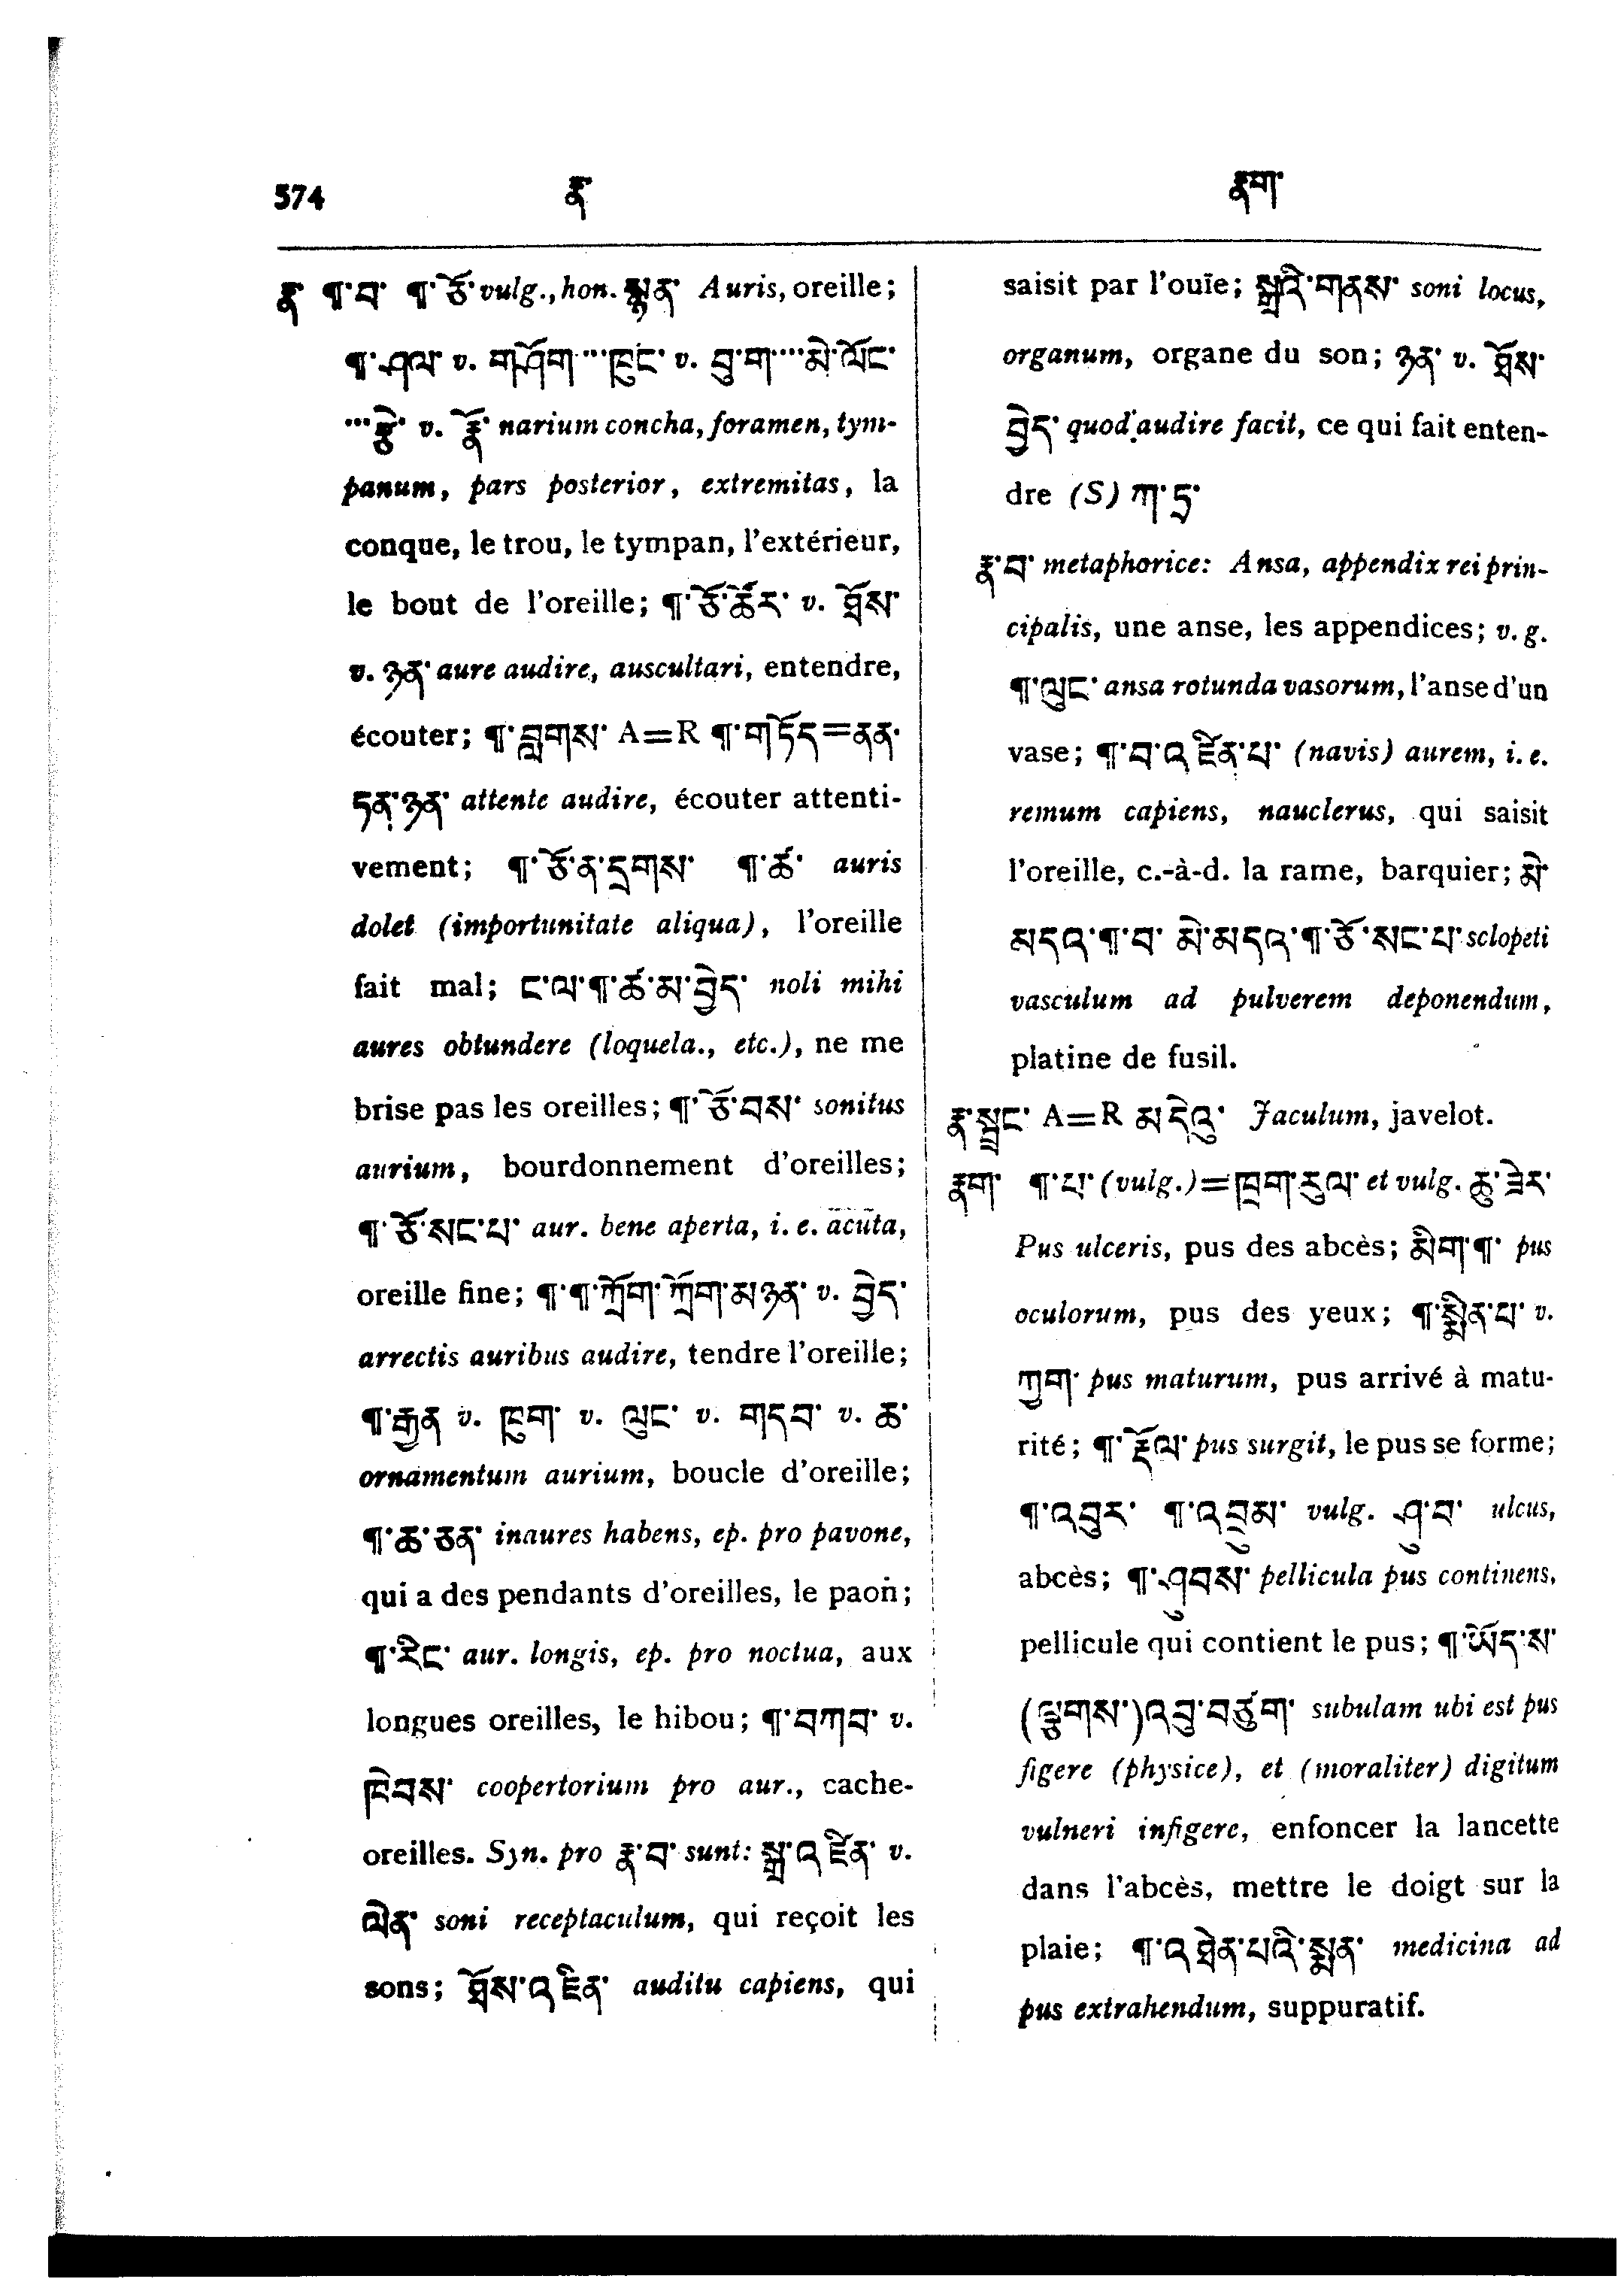 574
རྣ་
རྣག་
རྣ་ ¶་བ་ ¶་ཅོ་ vulg., hon. སྙན་ Auris, oreille;
¶་ཤལ་ v. གཤོག་···ཁུང་ v. བུ་ག་···མེ་ལོང་
···རྩེ་ v. རྣོ་ narium concha, foramen, tym-
panum, pars posterior, extremitas, la
conque, le trou, le tympan, l'extérieur,
le bout de l'oreille; ¶་ཅོ་ཚོར་ v. ཐོས་
v. ཉན་ aure audire, auscultari, entendre,
écouter; ¶་བླགས་ A=R ¶་གཏོད=ནན་
ཏན་ཉན་ attente audire, écouter attenti-
vement; ¶་ཅོ་ན་དྲགས་ ¶་ཚ་ auris
dolet (importunitate aliqua), l'oreille
fait mal; ང་ལ་¶་ཚ་མ་བྱེད་ noli mihi
aures obtundere (loquela., etc.), ne me
brise pas les oreilles; ¶་ཅོ་བས་ sonitus
aurium, bourdonnement d'oreilles;
¶་ཅོ་སང་པ་ aur. bene aperta, i. e. acuta,
oreille fine; ¶་¶་ཀྲོག་ཀྲོག་མཉན་ v. བྱེད་
arrectis auribus audire, tendre l'oreille;
¶་རྒྱན v. ཁུག་ v. ལུང་ v. གདབ་ v. ཆ་
ornamentum aurium, boucle d'oreille;
¶་ཆ་ཅན་ inaures habens, ep. pro pavone,
qui a des pendants d'oreilles, le paon;
¶་རིང་ aur. longis, ep. pro noctua, aux
longues oreilles, le hibou; ¶་བཀབ་ v.
ཁེབས་ coopertorium pro aur., cache-
oreilles. Syn. pro རྣ་བ་ sunt: སྒྲ་འཛིན་ v.
ལེན་ soni receptaculum, qui reçoit les
sons; ཐོས་འཛིན་ auditu capiens, qui
saisit par l'ouïe; སྒྲའི་གནས་ soni locus,
organum, organe du son; ཉན་ v. ཐོས་
བྱེད་ quod audire facit, ce qui fait enten-
dre (S) ཀ་དྲ་
རྣ་བ་ metaphorice: Ansa, appendix rei prin-
cipalis, une anse, les appendices; v. g.
¶་ལུང་ ansa rotunda vasorum, l'anse d'un
vase; ¶་བ་འཛིན་པ་ (navis) aurem, i. e.
remum capiens, nauclerus, qui saisit
l'oreille, c.-à-d. la rame, barquier; མེ་
མདའ་¶་བ་ མེ་མདའ་¶་ཅོ་སང་པ་ sclopeti
vasculum ad pulverem deponendum,
platine de fusil.
རྣ་སྦྲང་ A=R མདེའུ་ Jaculum, javelot.
རྣག་ ¶་པ་ (vulg.)=ཁྲག་རུལ་ et vulg. ཆུ་ཟེར་
Pus ulceris, pus des abcès; མིག་¶་ pus
oculorum, pus des yeux; ¶་སྨིན་པ་ v.
ཀྱུག་ pus maturum, pus arrivé à matu-
rité; ¶་རྡོལ་ pus surgit, le pus se forme;
¶་འབུར་ ¶་འབྲུམ་ vulg. ཤུ་བ་ ulcus,
abcès; ¶་ཤུབས་ pellicula pus continens,
pellicule qui contient le pus; ¶་ཡོད་ས་
(ལྕགས་)འབུ་བཙུག་ subulam ubi est pus
figere (physice), et (moraliter) digitum
vulneri infigere, enfoncer la lancette
dans l'abcès, mettre le doigt sur la
plaie; ¶་འཐེན་པའི་སྨན་ medicina ad
pus extrahendum, suppuratif.